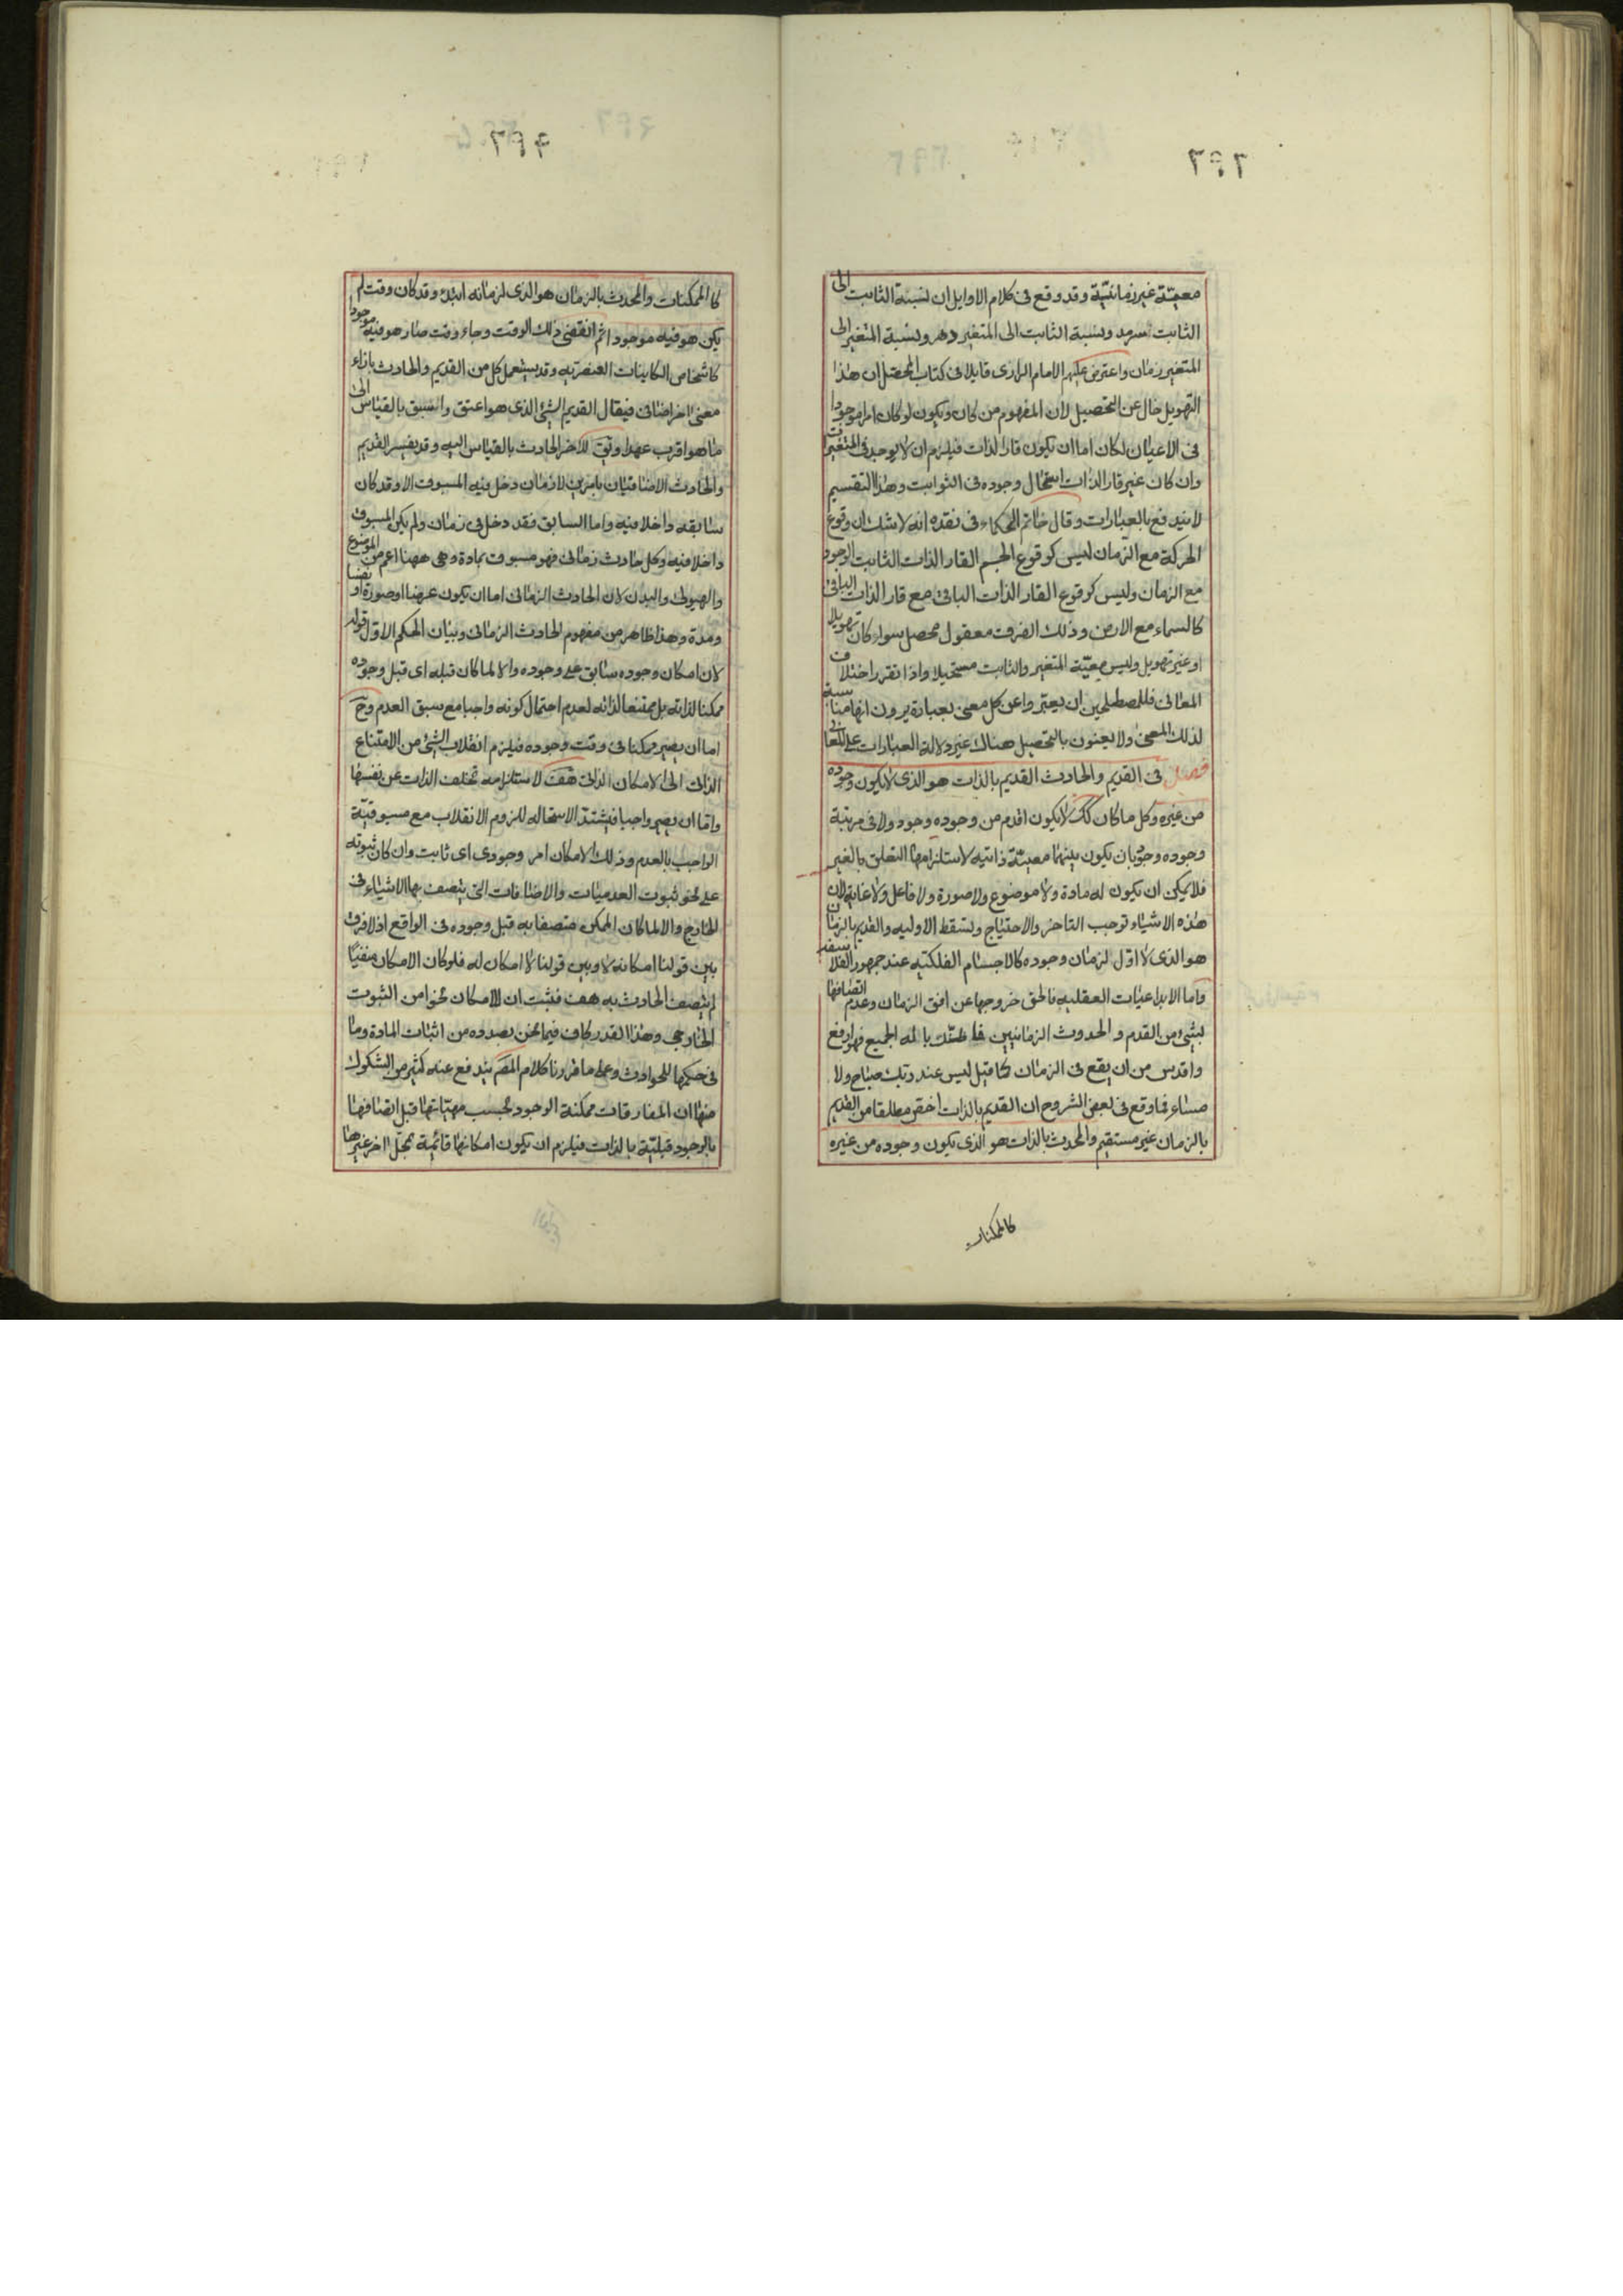 ٢٩٦
معيّة غير زمانيّة وقد وقع فى كلام الاوايل ان نسبة الثابت الى
الثابت سرمد ونسبة الثابت الى المتغير دهر ونسبة المتغير الى
المتغير زمان واعترض عليهم الامام الرازى قايلا فى كتاب المحصل ان هذا
التهويل خال عن التحصيل لان المفهوم من كان ويكون لو كان امرا موجودا
فى الاعيان لكان اما ان يكون قار الذات فيلزم ان لا يوجد فى المتغيرات
وان كان غير قار الذات استحال وجوده فى الثوابت وهذا التقسيم
لا يندفع بالعبارات وقال خاتم الحكماء فى نقده انه لا شك ان وقوع
الحركة مع الزمان ليس كوقوع الجسم القار الذات الثابت الوجود
مع الزمان وليس كوقوع القار الذات الباقى مع قار الذات الباقى
كالسماء مع الارض وذلك الفرق معقول محصل سواء كان تهويلا
او غير تهويل وليس معيّة المتغير والثابت مستحيلا واذا تقرر اختلاف
المعانى فللمصطلحين ان يعبّروا عن كل معنى بعبارة يرون انها مناسبة
لذلك المعنى ولا يعنون بالتحصيل هناك غير دلالة العبارات على المعانى
فصل فى القديم والحادث القديم بالذات هو الذى لا يكون وجوده
من غيره وكل ما كان كك لا يكون اقدم من وجوده وجود ولا فى مرتبة
وجوده وجود بان يكون بينهما معيّة ذاتيه لاستلزامها التعلق بالغير
فلا يمكن ان يكون له مادة ولا موضوع ولا صورة ولا فاعل ولا غاية لان
هذه الاشياء توجب التاخر والاحتياج وتسقط الاوليه والقديم بالزمان
هو الذى لا اول لزمان وجوده كالاجسام الفلكيه عند جمهور الفلاسفه
واما الابداعيات العقليه فالحق خروجها عن افق الزمان وعدم اتصافها
بشئ من القدم والحدوث الزمانيين فما ظنك باله الجميع فهو ارفع
واقدس من ان يقع فى الزمان كما قيل ليس عند ربك صباح ولا
مساء فما وقع فى بعض الشروح ان القديم بالذات اخص مطلقا من القديم
بالزمان غير مستقيم والمحدث بالذات هو الذى يكون وجوده من غيره
كالممكنات
٢٩٧
كالممكنات والمحدث بالزمان هو الذى لزمانه ابتداء وقد كان وقت لم
يكن هو فيه موجودا ثم انقضى ذلك الوقت وجاء وقت صار هو فيه موجودا
كاشخاص الكاينات العنصريه وقد يستعمل كل من القديم والحادث بازاء
معنى اخر اضافى فيقال القديم الشئ الذى هو اعتق واسبق بالقياس الى
ما هو اقرب عهدا ويق للاخر الحادث بالقياس اليه وقد يفسر القديم
والحادث الاضافيان بامرين لا زمان دخل فيه المسبوق الا وقد كان
سابقه داخلا فيه واما السابق فقد دخل فى زمان ولم يكن المسبوق
داخلا فيه وكل حادث زمانى فهو مسبوق بمادة وهى ههنا اعم من الموضوع
والهيولى والبدن لان الحادث الزمانى اما ان يكون عرضا او صورة او نفسا
ومدة وهذا ظاهر من مفهوم الحادث الزمانى وبيان الحكم الاول قوله
لان امكان وجوده سابق على وجوده والا لما كان قبله اى قبل وجوده
ممكنا لذاته بل ممتنعا لذاته لعدم احتمال كونه واجبا مع سبق العدم وح
اما ان يصير ممكنا فى وقت وجوده فيلزم انقلاب الشئ من الامتناع
الذاتى الى الامكان الذاتى هف لاستلزامه تخلف الذات عن نفسها
واما ان يصير واجبا فيشتد الاستحاله للزوم الانقلاب مع مسبوقيّة
الواجب بالعدم وذلك الامكان امر وجودى اى ثابت وان كان ثبوته
على نحو ثبوت العدميات والاضافات التى يتصف بها الاشياء فى
الخارج والا لما كان الممكن متصفا به قبل وجوده فى الواقع اذ لا فرق
بين قولنا امكانه لا وبين قولنا لا امكان له فلو كان الامكان منفيّا
لم يتصف الحادث به هف فثبت ان للامكان نحوا من الثبوت
الخارجى وهذا القدر كاف فيما نحن بصدده من اثبات المادة وما
فى حكمها للحوادث وعلى ما قررنا كلام المص يندفع عنه كثير من الشكوك
منها ان المفارقات ممكنة الوجود بحسب مهيّاتها قبل اتصافها
بالوجود قبليّة بالذات فيلزم ان يكون امكانها قائمة بمحل اخر غيرها